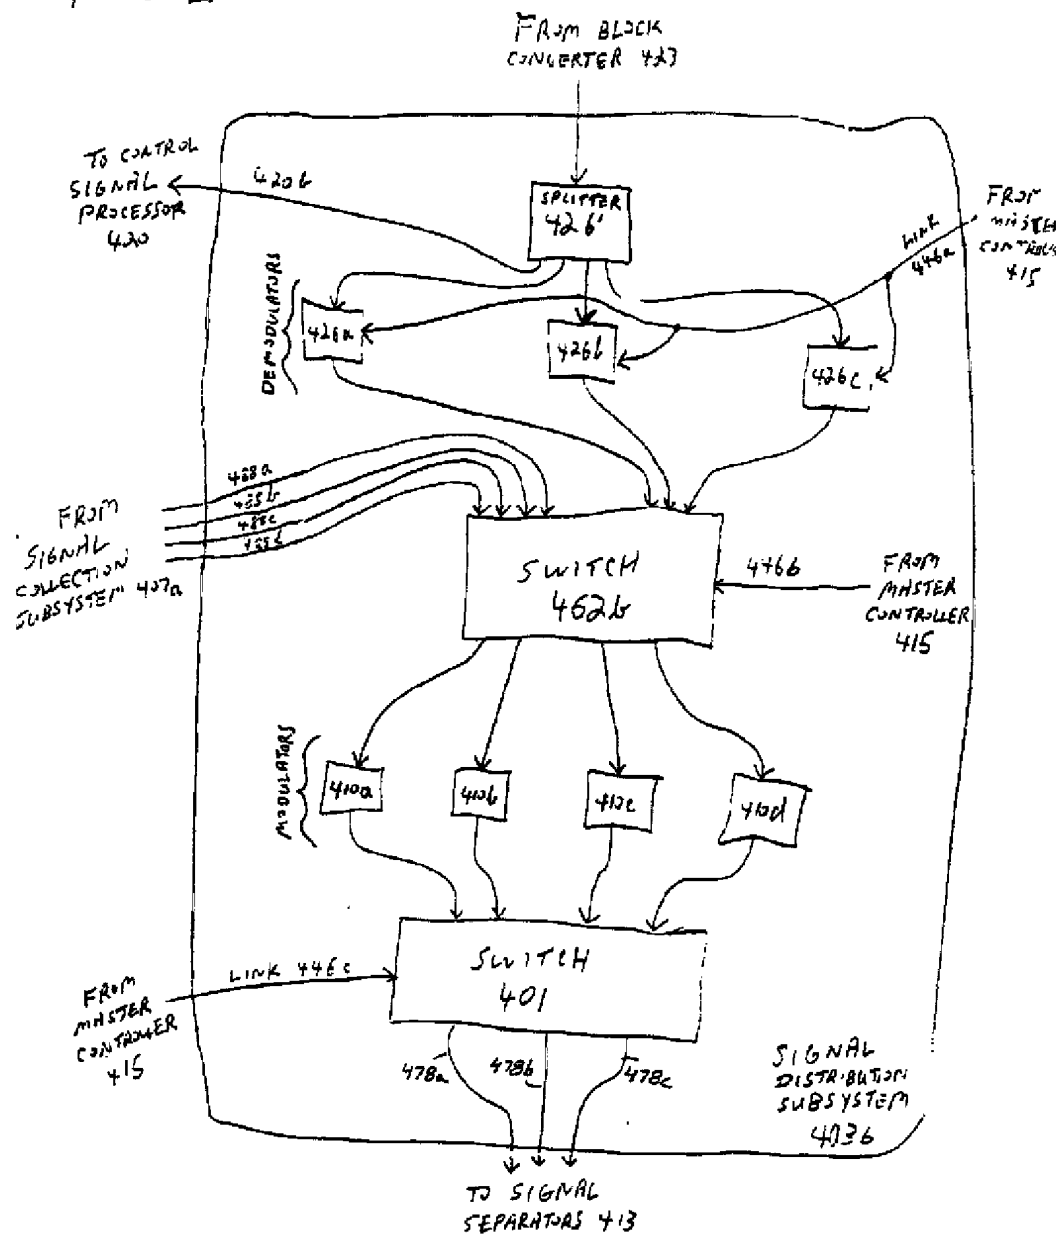 FROM BLOCK
CONVERTER 423
TO CONTROL
SIGNAL
PROCESSOR
420
420b
SPLITTER
426'
FROM
MASTER
415
LINK
446a
DEMODULATORS
426a
426b
426c
488a
488b
488c
488d
FROM
SIGNAL
COLLECTION
SUBSYSTEM 407a
SWITCH
462b
446b
FROM
MASTER
CONTROLLER
415
MODULATORS
410a
410b
410c
410d
SWITCH
401
LINK 446c
FROM
MASTER
CONTROLLER
415
478a
478b
478c
SIGNAL
DISTRIBUTION
SUBSYSTEM
403b
TO SIGNAL
SEPARATORS 413